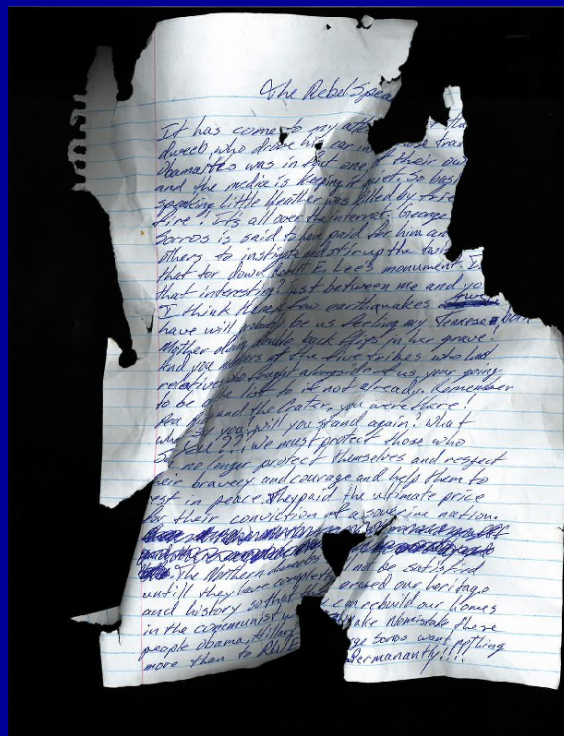 The Rebel Spea
It has come to my atte tha
dweeb, who drove his car in those trai
Obamaites was in fact one of their own
and the media is keeping it quiet. So basi
speaking little Heather was killed by frie
fire! It's all over the internet. George
Sorros is said to have paid for him an
others to instigate and stir up the
that tor down Robert E. Lee's monument. Is
that interesting? Just between me and yo
I think these few earthquakes
have will probably be us feeling my Tennesee born
Mother doing double back flips in her grave.
And you members of the five tribes who had
relatives who fought alongside of us, your going
to be on the list to if not already. Remember
Pea and the Crater, you were there!
Will you, will you stand again? What
Say you??? We must protect those who
no longer protect themselves and respect
eir bravery and courage and help them to
est in peace. They paid the ultimate price
for their conviction of a soverine nation.
The Northern not be satisfied
untill they have completely erased our heritage
and history so that can rebuild our homes
in the communist w Make No mistake these
people Obama, Hillary ge Soros want nothing
more than to Permanantly!!!